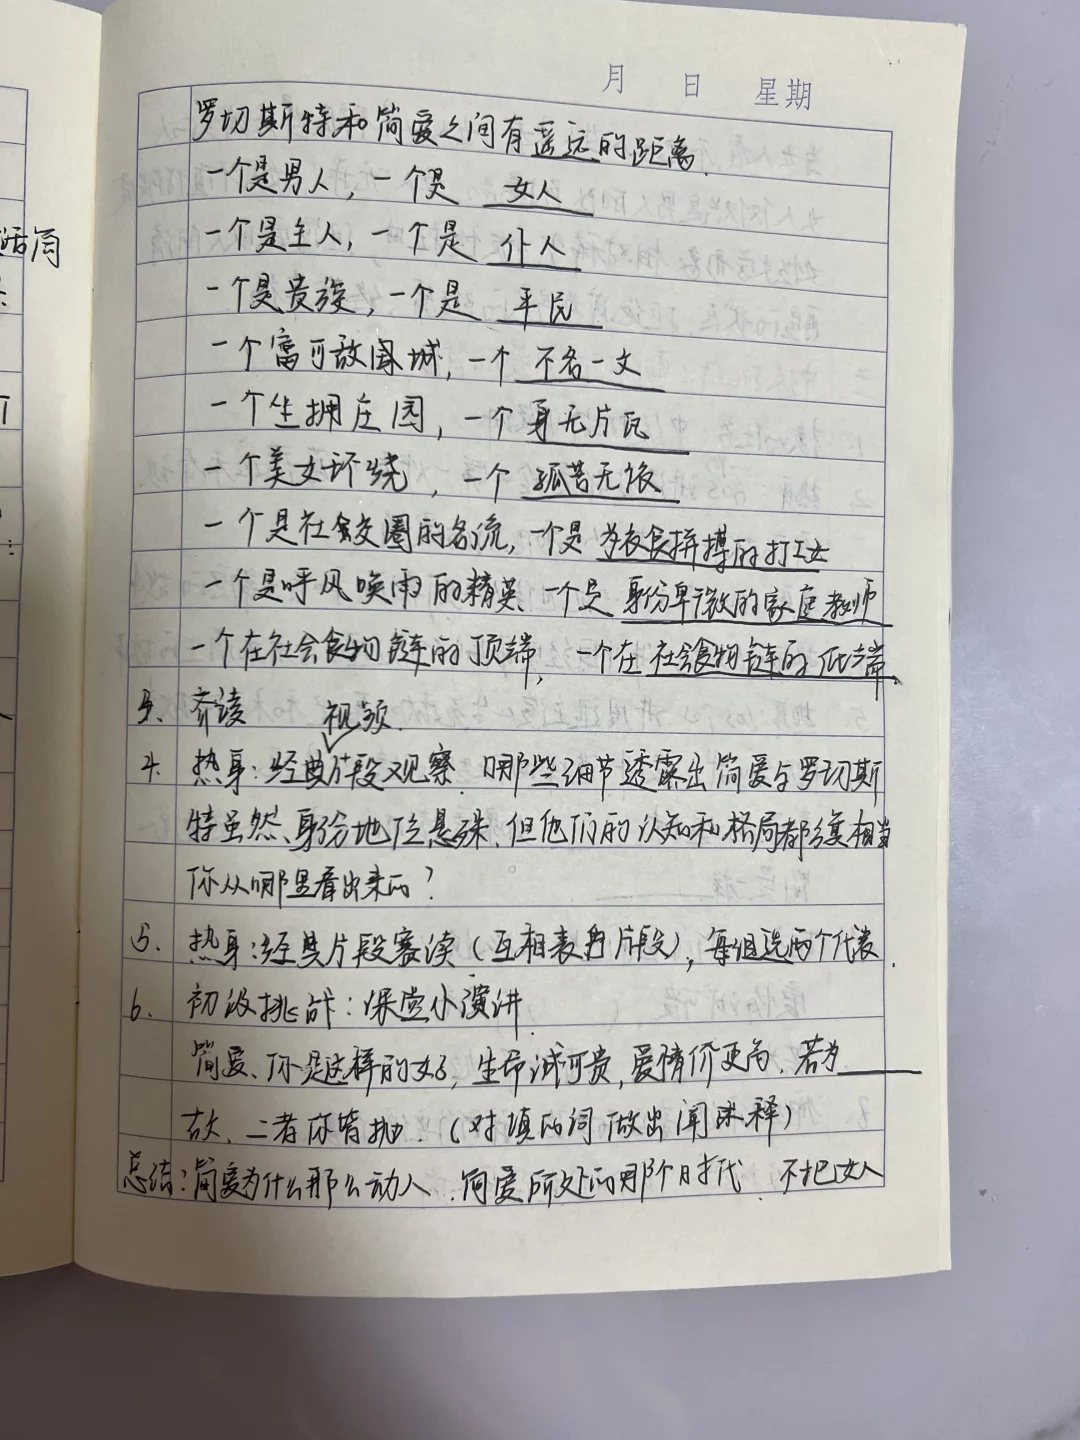 月 日 星期
罗切斯特和简爱之间有遥远的距离.
一个是男人，一个是 女人
一个是主人，一个是 仆人
一个是贵族，一个是 平民
一个富可敌国城，一个 不名一文
一个坐拥庄园，一个 身无片瓦
一个美女环绕，一个 孤苦无依
一个是社会交圈的名流，一个是 为衣食拼搏的打工女
一个是呼风唤雨的精英、一个是 身份卑微的家庭教师
一个在社会食物链的顶端，一个在 社会食物链的低端.
3、齐读
视频
4. 热身：经典片段观察. 哪些细节透露出简爱与罗切斯
特虽然、身份地位悬殊，但他们的认知和格局都 相当
你从哪里看出来的？
5. 热身：经典片段赛读（互相表 片段），每组选两个代表.
6. 初级挑战：课堂小演讲.
简爱、你是这样的女子，生命诚可贵，爱情价更高，若为
故、二者亦皆抛.（对填的词做出阐述释）
总结：简爱为什么那么动人. 简爱所处的那个时代. 不把女人
话局